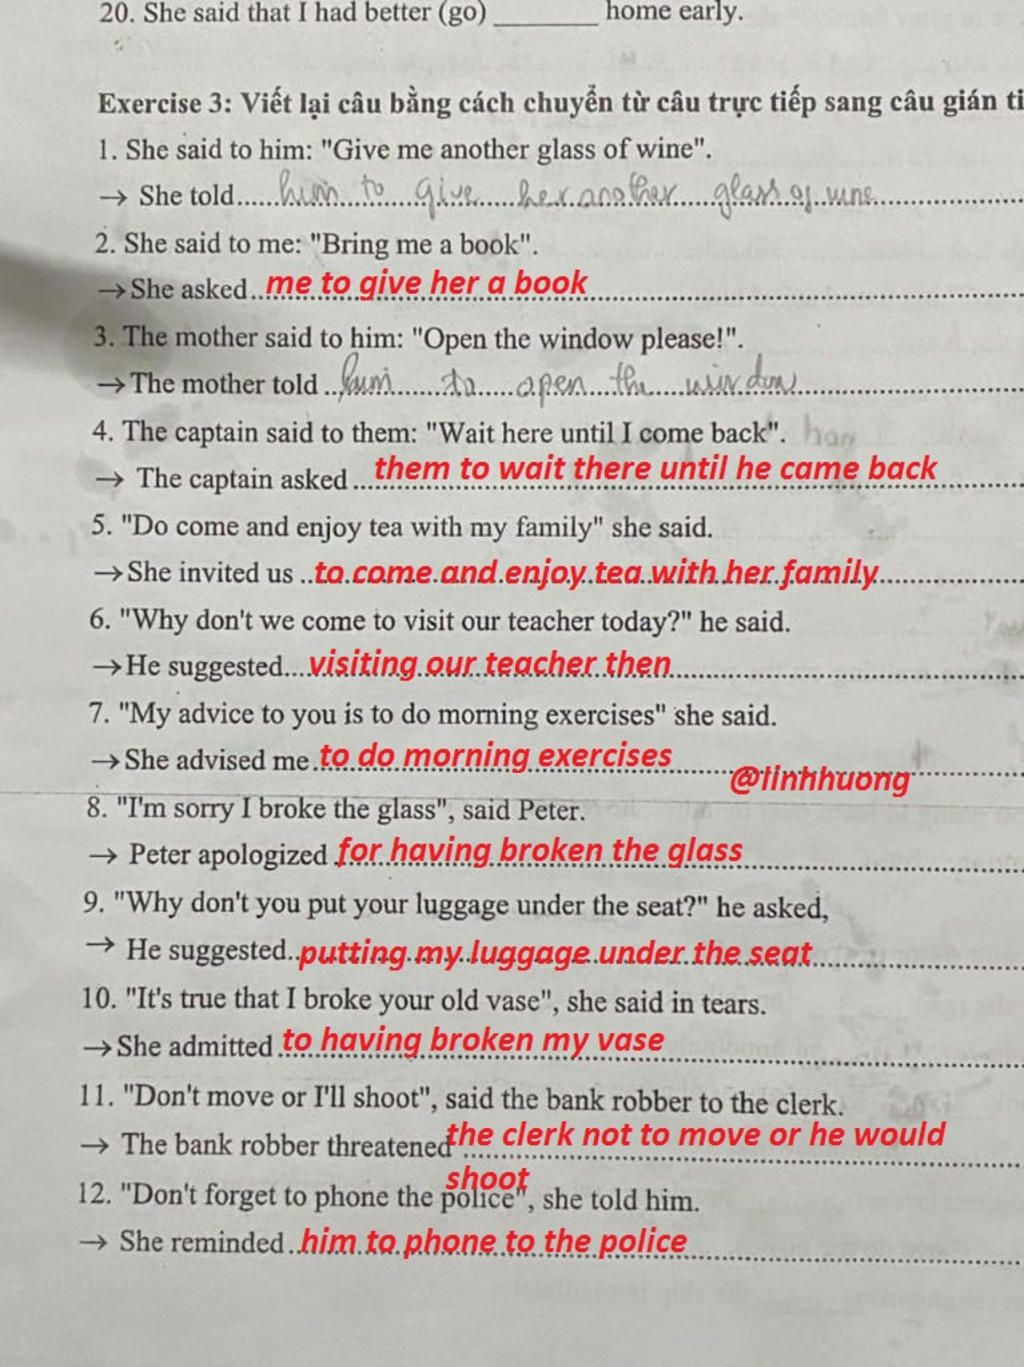 20. She said that I had better (go) _______ home early.
Exercise 3: Viết lại câu bằng cách chuyển từ câu trực tiếp sang câu gián ti
1. She said to him: "Give me another glass of wine".
→ She told......him to give her another glass of wine
2. She said to me: "Bring me a book".
→ She asked..me to give her a book
3. The mother said to him: "Open the window please!".
→ The mother told ..him to open the window
4. The captain said to them: "Wait here until I come back".
→ The captain asked ...them to wait there until he came back
5. "Do come and enjoy tea with my family" she said.
→ She invited us ..to come and enjoy tea with her family
6. "Why don't we come to visit our teacher today?" he said.
→ He suggested....visiting our teacher then
7. "My advice to you is to do morning exercises" she said.
→ She advised me.to do morning exercises
@linhhuong
8. "I'm sorry I broke the glass", said Peter.
→ Peter apologized for having broken the glass
9. "Why don't you put your luggage under the seat?" he asked,
→ He suggested..putting my luggage under the seat
10. "It's true that I broke your old vase", she said in tears.
→ She admitted to having broken my vase
11. "Don't move or I'll shoot", said the bank robber to the clerk.
→ The bank robber threatened the clerk not to move or he would
shoot
12. "Don't forget to phone the police", she told him.
→ She reminded..him to phone to the police